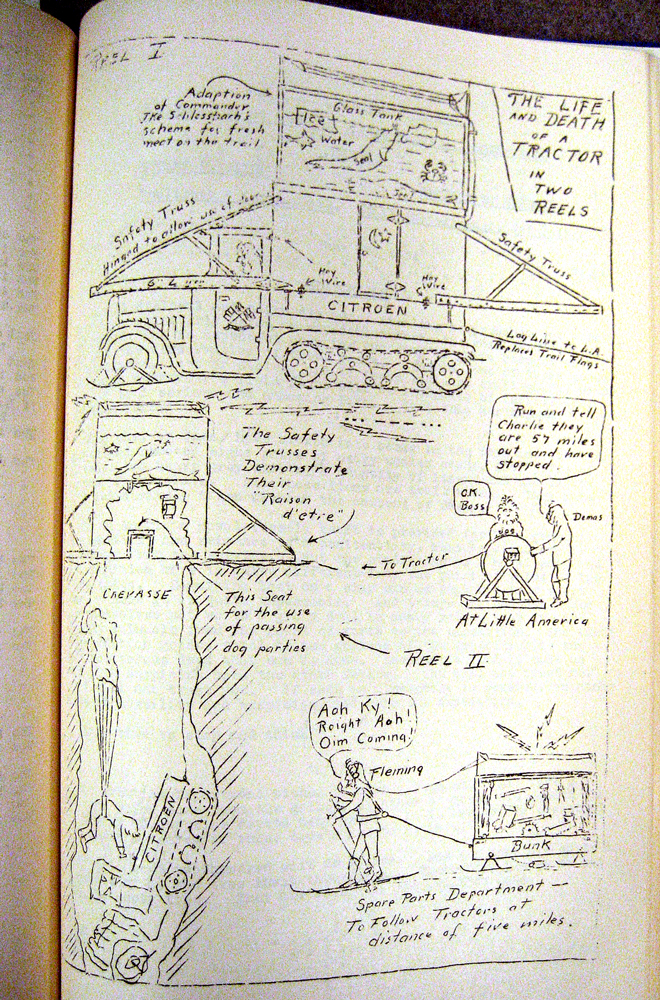 REEL I
THE LIFE
AND DEATH
OF A
TRACTOR
IN
TWO
REELS
Adaption
of Commander
Ike Schlossbach's
scheme for fresh
meat on the trail
Glass Tank
Ice
Water
Seal
Safety Truss
Hinged to allow use of door
Hay
Wire
Hay
Wire
CITROEN
Safety Truss
Log Line to L.A.
Replaces Trail Flags
The Safety
Trusses
Demonstrate
Their
"Raison
d'etre"
Run and tell
Charlie they
are 57 miles
out and have
stopped.
O.K.
Boss
Demas
← To Tractor
At Little America
CREVASSE
This Seat
for the use
of passing
dog parties
REEL II
Aoh Ky!
Roight Aoh!
Oim Coming!
Fleming
CITROEN
Bunk
Spare Parts Department —
To Follow Tractors at
distance of five miles.